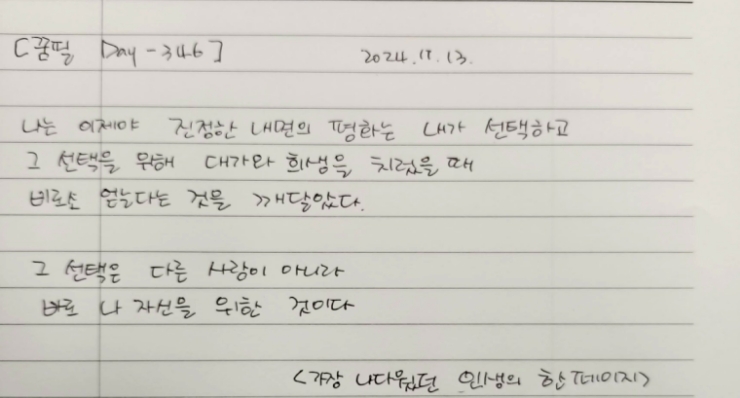 [꿈필 Day - 346] 2024.11.13.
나는 이제야 진정한 내면의 평화는 내가 선택하고
그 선택을 위해 대가와 희생을 치렀을 때
비로소 얻는다는 것을 깨달았다.
그 선택은 다른 사람이 아니라
바로 나 자신을 위한 것이다
<가장 나다웠던 인생의 한 페이지>